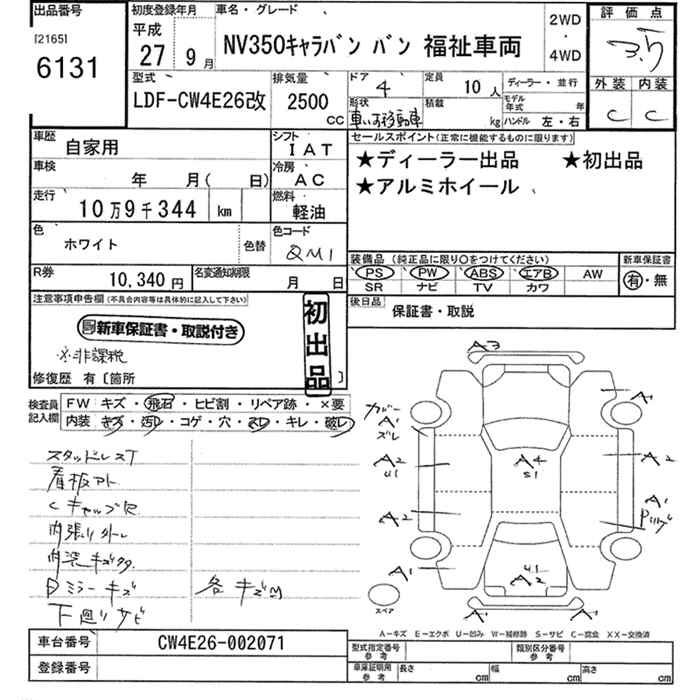 出品番号 初度登録年月 車名・グレード 2WD ・ 4WD 評価点
[2165] 6131 平成 27 9月 NV350キャラバン バン 福祉車両 3.5
型式 LDF-CW4E26改 排気量 2500 CC ドア 4 定員 10人 ディーラー・並行
形状 車いす移動車 積載 kg モデル年式 年 ハンドル 左・右
外装 内装
C C
車歴 自家用 シフト IAT
車検 年 月( 日) 冷房 AC
走行 10万9千344 km 燃料 軽油
色 ホワイト 色替 色コード QM1
R券 10,340円 名変通知期限 月 日
セールスポイント(正常に機能するものに限ります)
★ディーラー出品 ★初出品
★アルミホイール
装備品 (純正品に限り○をつけてください) 新車保証書
PS PW ABS エアB AW 有・無
SR ナビ TV カワ
後日品 保証書・取説
注意事項申告欄(不具合内容等は具体的に記入して下さい)
新車保証書・取説付き
※非課税
初出品
修復歴 有〔箇所 〕
検査員記入欄 FW キズ・飛石・ヒビ割・リペア跡・×要
内装 キズ・汚レ・コゲ・穴・スレ・キレ・破レ
スタッドレスT
看板アト
Cキャップ欠
内張り外レ
内装キズ多々
Dミラーキズ 各キズ凹
下廻りサビ
A3
カバー A1 ズレ A1
A2 U1 A4 S1 A2
A2 A1 Pリップ
A1 U1 A2
A1 A1
スペア
A-キズ E-エクボ U-凹み W-補修跡 S-サビ C-腐食 XX-交換済
車台番号 CW4E26-002071
登録番号
型式指定番号 参考 類別区分番号 参考
車庫証明用 参考 長さ cm 幅 cm 高さ cm